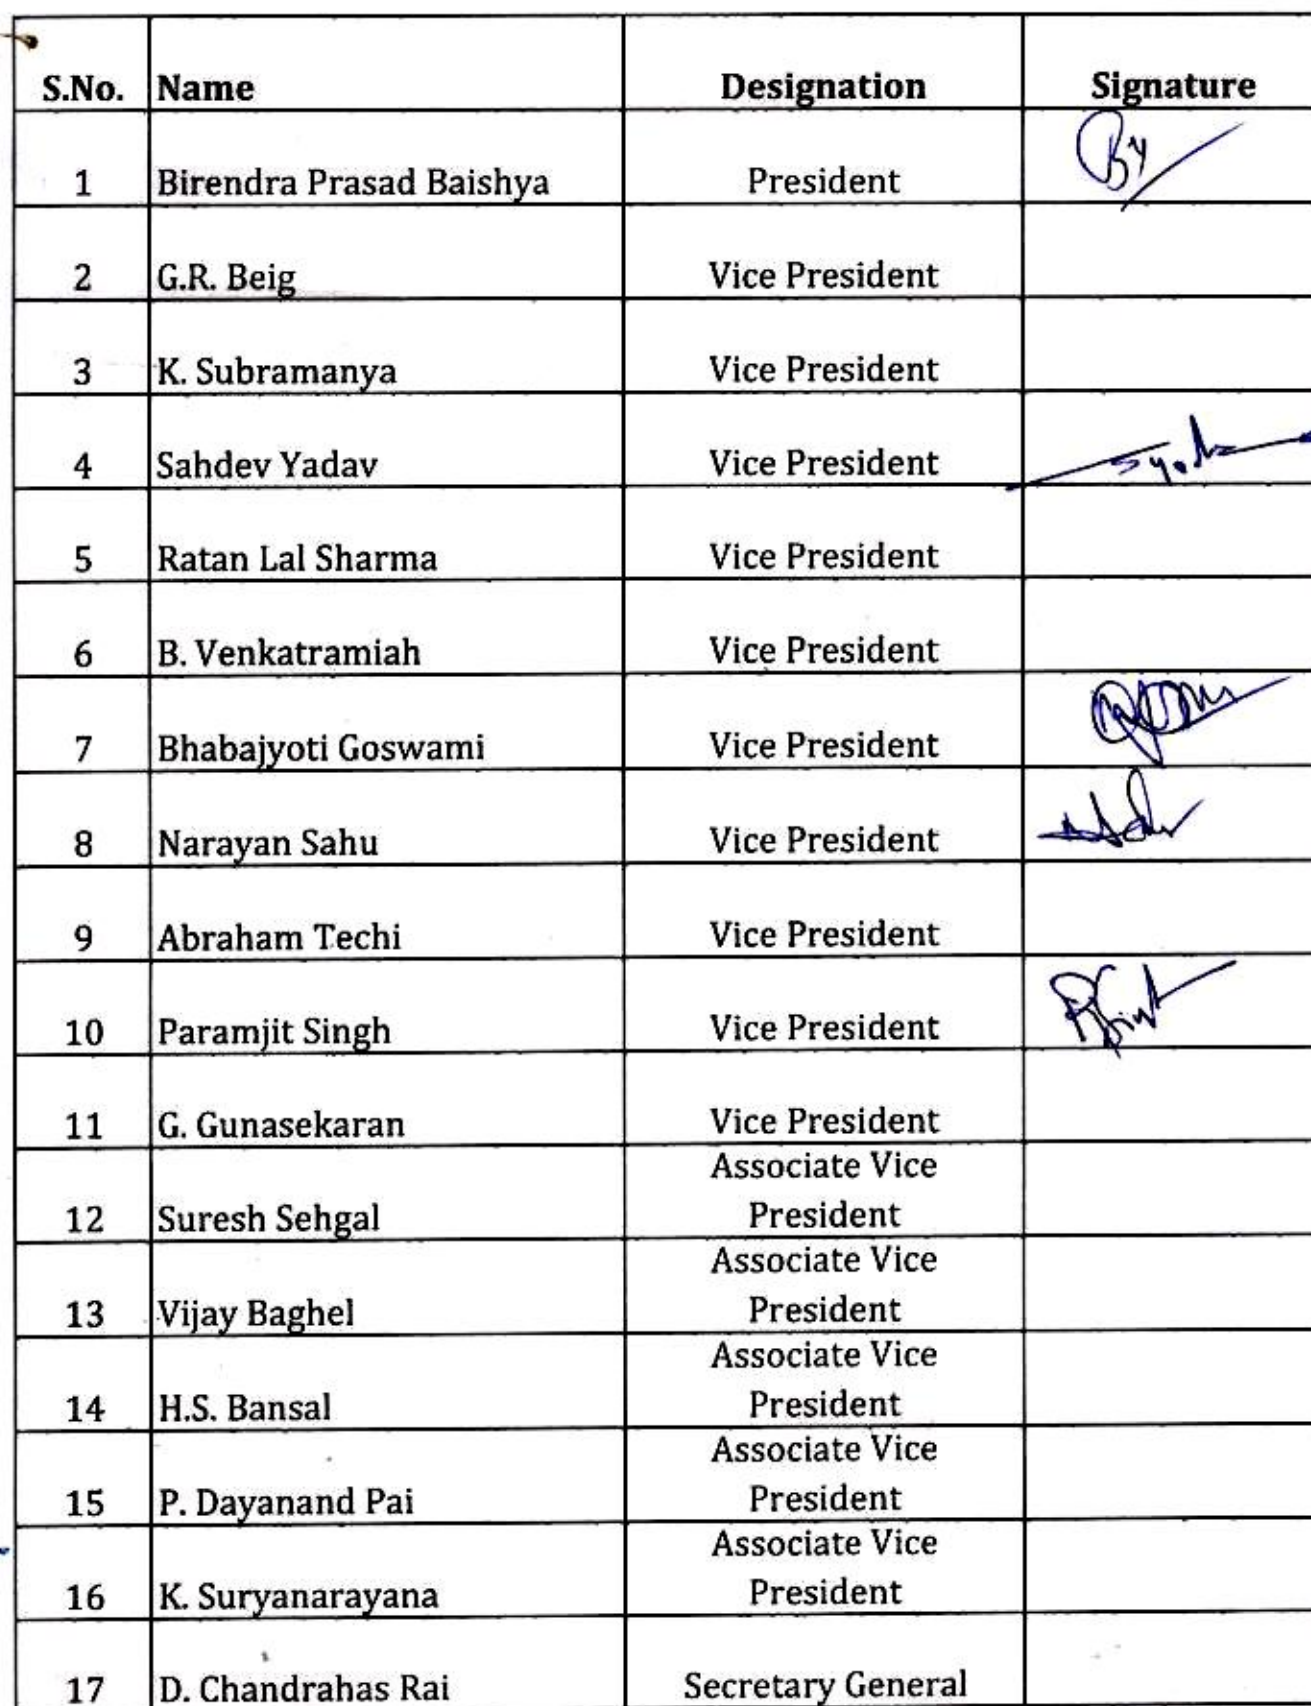 S.No. Name Designation Signature
1 Birendra Prasad Baishya President
2 G.R. Beig Vice President
3 K. Subramanya Vice President
4 Sahdev Yadav Vice President
5 Ratan Lal Sharma Vice President
6 B. Venkatramiah Vice President
7 Bhabajyoti Goswami Vice President
8 Narayan Sahu Vice President
9 Abraham Techi Vice President
10 Paramjit Singh Vice President
11 G. Gunasekaran Vice President
Associate Vice
12 Suresh Sehgal President
Associate Vice
13 Vijay Baghel President
Associate Vice
14 H.S. Bansal President
Associate Vice
15 P. Dayanand Pai President
Associate Vice
16 K. Suryanarayana President
17 D. Chandrahas Rai Secretary General